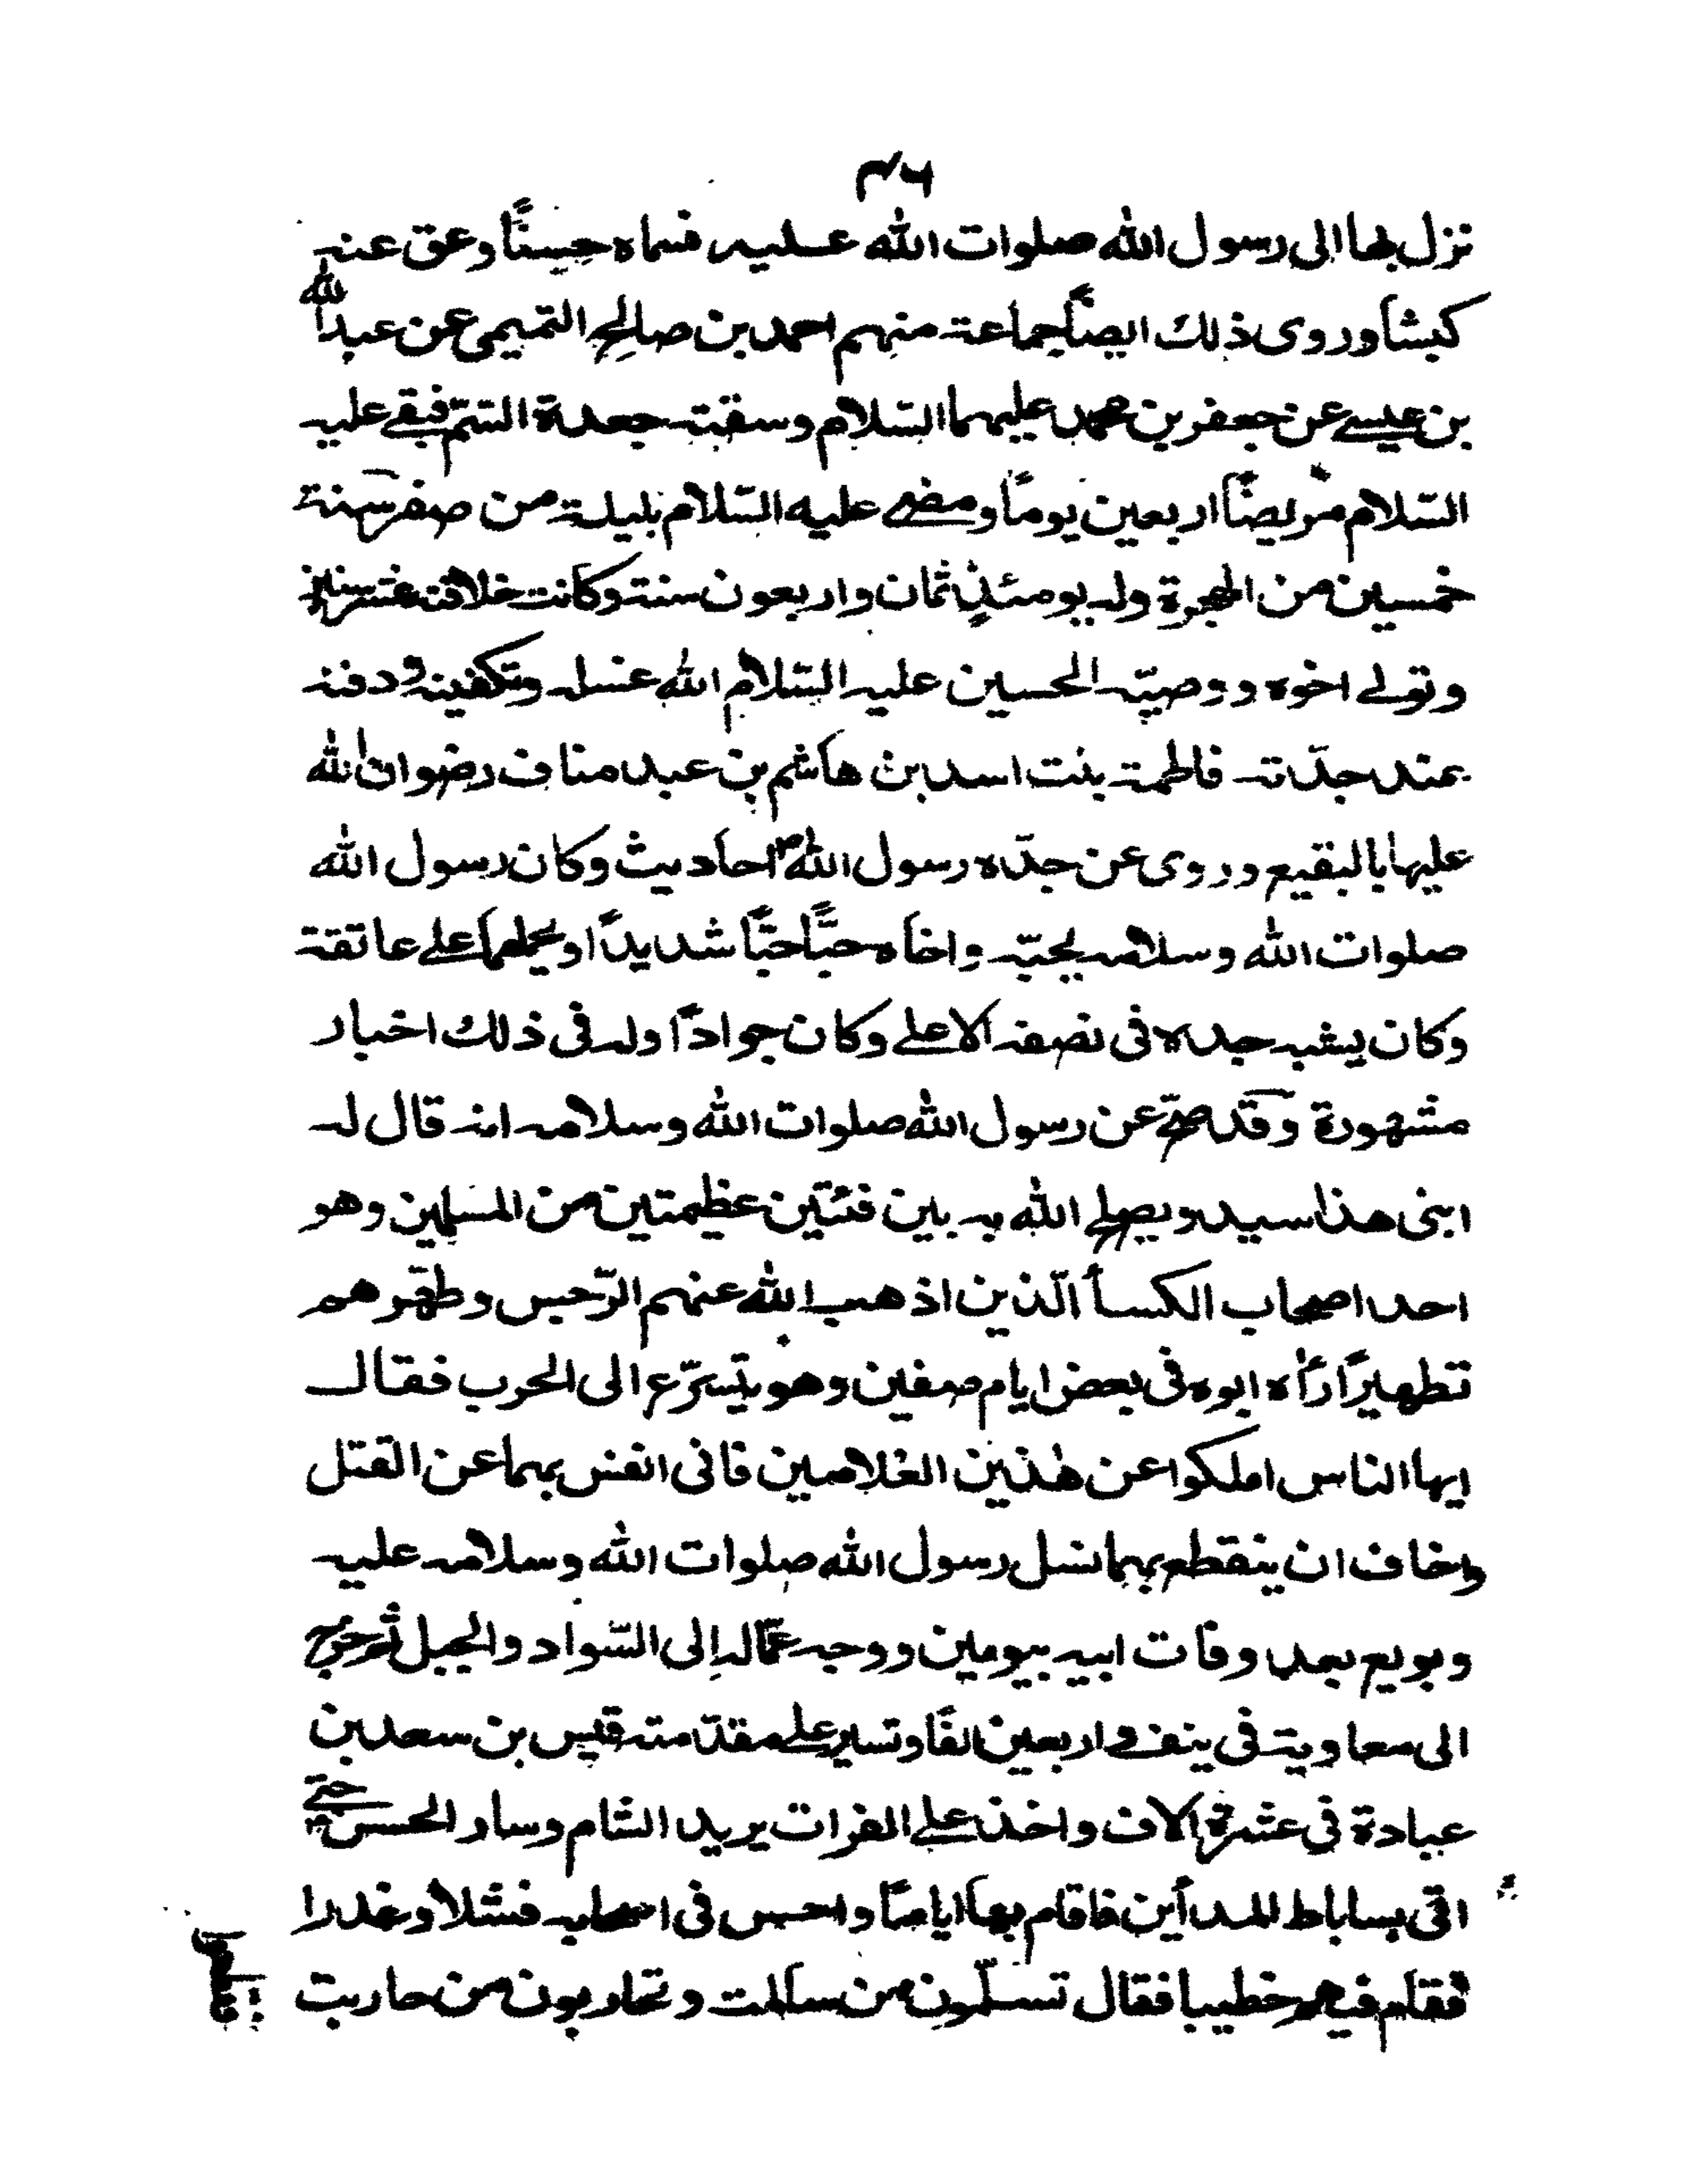 ٤٦
نزل بها الى رسول الله صلوات الله عليه فسماه حسنًا وعق عنه
كبشا وروى ذلك ايضًا جماعة منهم احمد بن صالح التميمى عن عبد الله
بن عيسے عن جعفر بن محمد عليهما السّلام وسقته جعدة السّمّ فبقے عليه
السّلام مريضًا اربعين يومًا ومضے عليه السّلام بليلة من صفر سنة
خمسين من الهجرة وله يومئذٍ ثمان واربعون سنة وكانت خلافته عشر سنين
وتولے اخوه ووصيّه الحسين عليه السّلام الله غسله وتكفينه ودفنه
عند جدّته فاطمة بنت اسد بن هاشم بن عبد مناف رضوان الله
عليها بالبقيع وروى عن جدّه رسول اللهؐ احاديث وكان رسول الله
صلوات الله وسلامه يحبّه واخاه حبًّا حبًّا شديدًا ويحملهما علے عاتقة
وكان يشبه جده فى نصفه الاعلے وكان جوادًا وله فى ذلك اخبار
مشهورة وقد صحّ عن رسول الله صلوات الله وسلامه انه قال له
ابنى هذا سيد ويصلح الله به بين فئتين عظيمتين من المسلمين وهو
احد اصحاب الكسأ الّذين اذهب الله عنهم الرّجس وطهّرهم
تطهيرًا رأه ابوه فى بعض ايام صفين وهو يتسرّع الى الحرب فقال
ايها الناس املكوا عن هٰذين الغلامين فانى انفس بهما عن القتل
واخاف ان ينقطع بهما نسل رسول الله صلوات الله وسلامه عليه
وبويع بعد وفات ابيه بيومين ووجه عمّاله إلى السّواد والجبل ثم خرج
الى معاوية فى ينف واربعين الفًا وتسير علے مقدّمته قيس بن سعد بن
عبادة فى عشرة الاف واخذ علے الفرات يريد الشام وسار الحسنؑ حتے
اتى بساباط المدأين فاقام بها ايامًا واحس فى اصحابه فشلا وغدرا
فقام فيهم خطيبا فقال تسلّمون من سالمت وتحاربون من حاربت